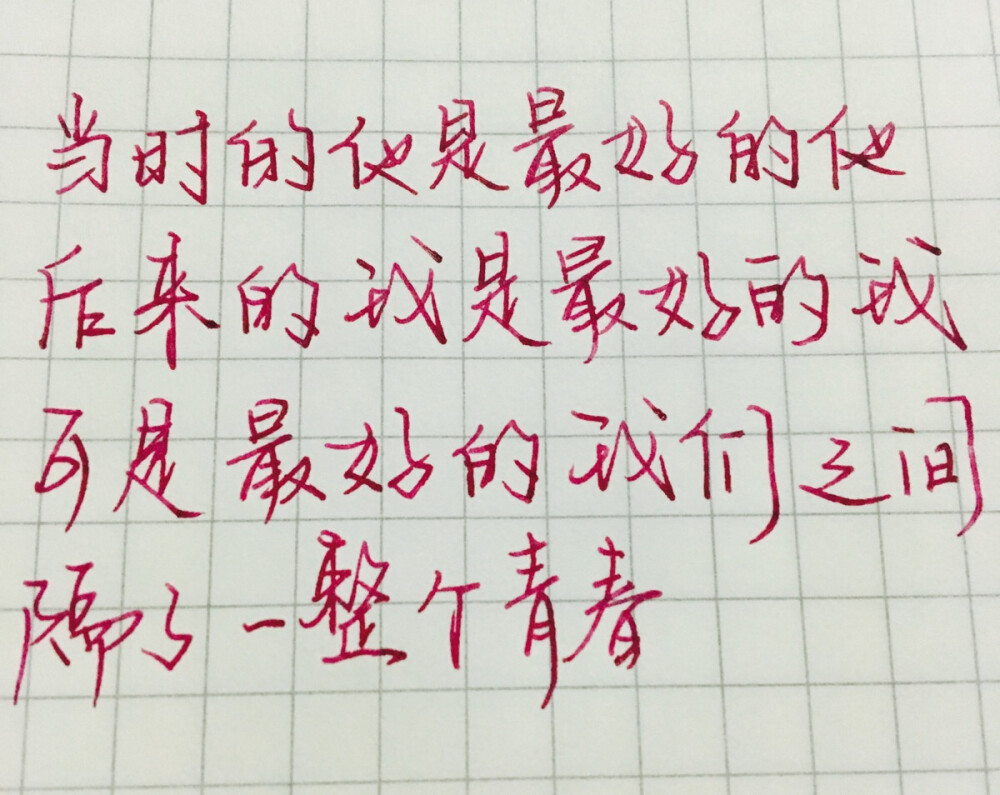 当时的他是最好的他
后来的我是最好的我
可是最好的我们之间
隔了一整个青春